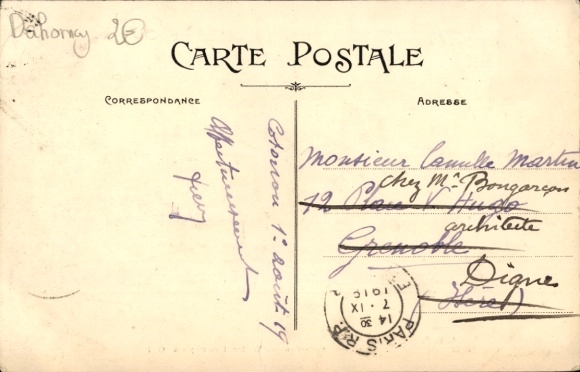 Dahomey 2€
CARTE POSTALE
CORRESPONDANCE
ADRESSE
Cotonou 1º août 19
Affectueusement
Monsieur Camille Martin
chez Mr Bongarçon
12 Place V. Hugo
architecte
Grenoble
Digne
(Isère)
PARIS R.P.
14 30
7 · IX